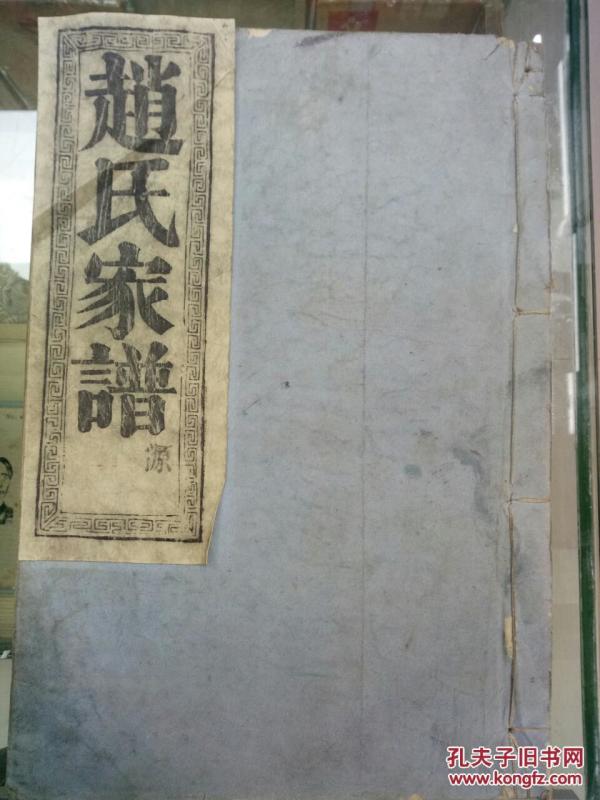 趙氏家譜
源
孔夫子旧书网
www.kongfz.com